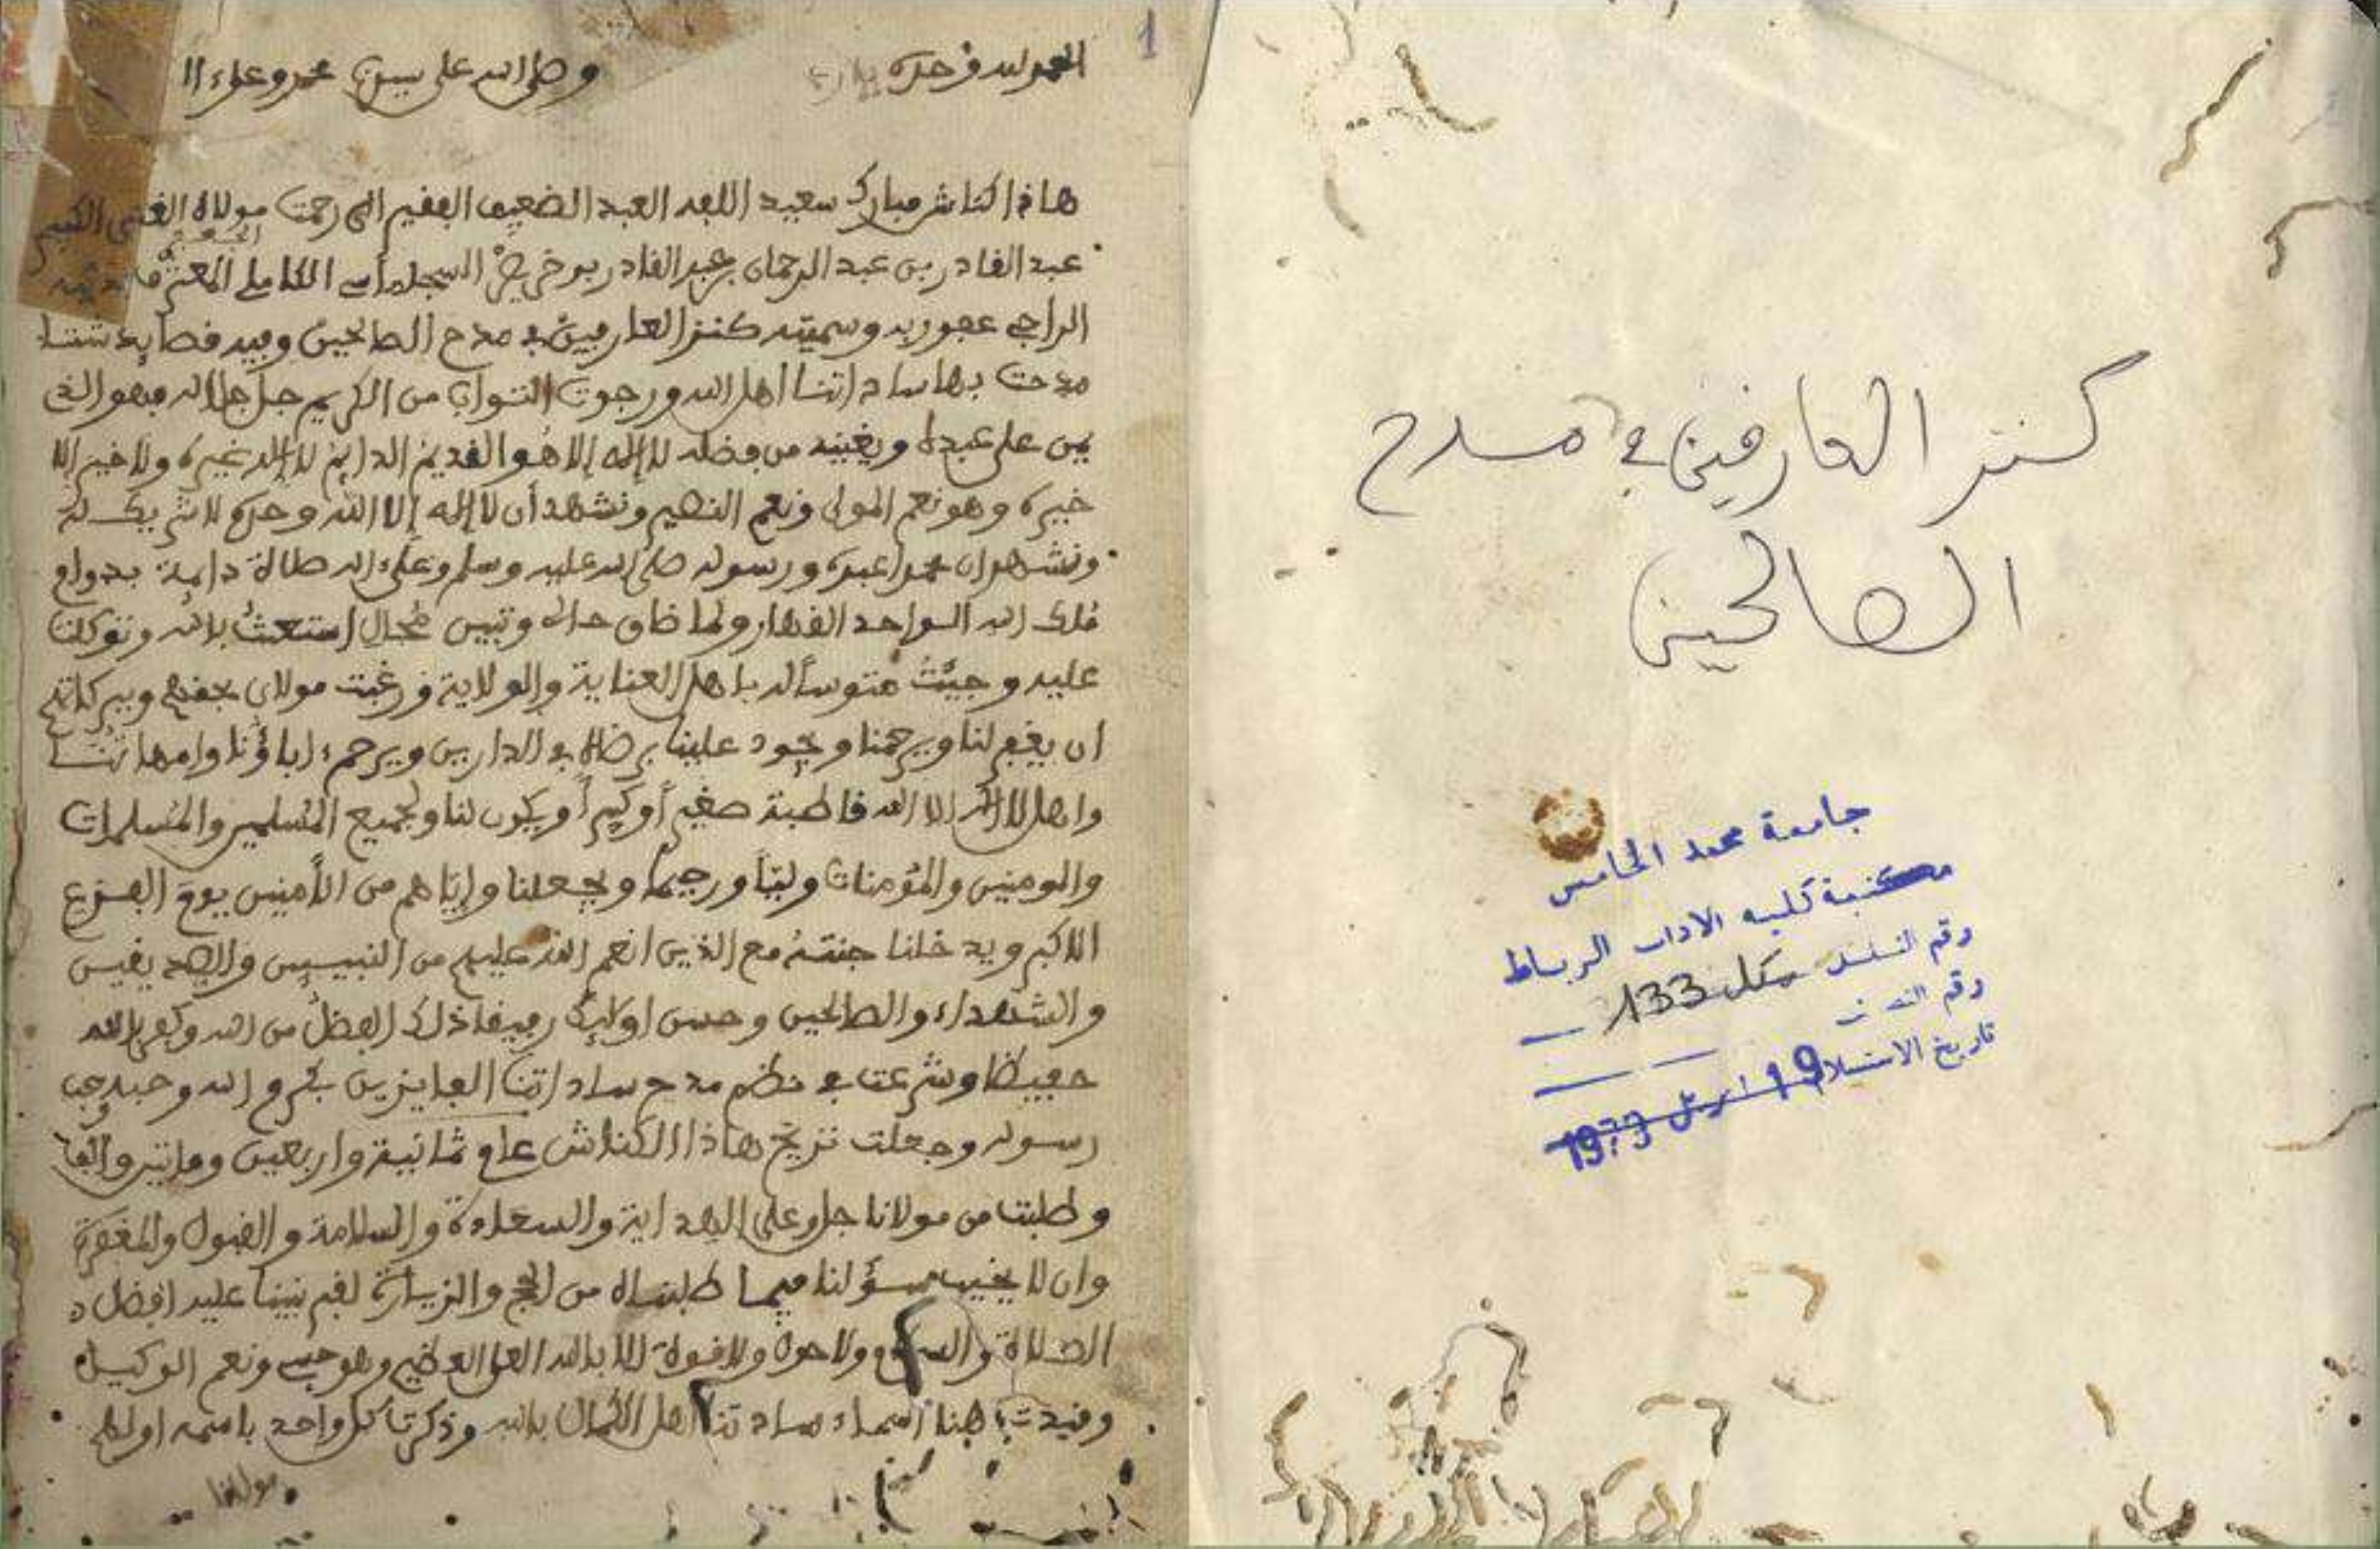 كنز العارفين في مدح
الصالحين
جامعة محمد الخامس
مكتبة كلية الاداب الرباط
رقم التسلسل مكل 133
رقم
تاريخ الاستلام 19 ابريل 1979
1
الحمد لله وحده وصلى الله على سيدنا محمد وعلى ءا
هاذا كناش مبارك سعيد اللعبد العبد الضعيف الفقير الى رحمت مولاه الغني الكبير
عبد القادر بن عبد الرحمان بن عبد القادر بوخريص السجلماسي
الراجي عفو ربه وسميته كنز العارفين في مدح الصالحين وفيه قصايد شتا
مدحت بها ساداتنا اهل الله ورجوت الثواب من الكريم جل جلاله فهو الذي
يمن على عبده ويغنيه من فضله لا إله إلا هو القديم الدايم لا إله غيره ولا خير الا
خيره وهو نعم المولى ونعم النصير ونشهد أن لا إله إلا الله وحده لا شريك له
ونشهد ان محمدا عبده ورسوله صلى الله عليه وسلم وعلى ءاله صلاة دايمة بدوام
ملك الله الواحد القهار ولما ضاق حالي استعثت بالله وتوكلت
عليه وجيت متوسلا له باهل العناية والولاية ورغبت مولاي بحقهم وببركاتهم
ان يغفر لنا ويرحمنا ويجود علينا برضاه في الدارين ويرحم ءاباؤنا وامهاتنا
واهل لا إله الا الله قاطبة صغيراً وكبيراً ويكون لنا ولجميع المسلمين والمسلمات
والمومنين والمؤمنات وليّاً ورحيما ويجعلنا وإيّاهم من الأمنين يوم الفزع
الاكبر ويدخلنا جنته مع الذين انعم الله عليهم من النبيين والصديقين
والشهداء والصالحين وحسن اولايك رفيقا ذلك الفضل من الله وكفى بالله
حفيظا وشرعت في نظم مدح ساداتنا الفايزين بكرم الله وحبه وحب
رسوله وجعلت تريخ هاذا الكناش عام ثمانية واربعين وماتين والف
وطلبت من مولانا جل وعلى الهداية والسعادة والسلامة والقبول والمغفرة
وان لا يخيب سؤلنا فيما طلبناه من الحج والزيارة لقبر نبينا عليه افضل
الصلاة والسلام ولا حول ولا قوة الا بالله العلي العظيم وهو حسبي ونعم الوكيل
وقيدت هنا اسماء ساداتنا اهل الكمال بالله وذكرت كل واحد باسمه اولهم
مولانا